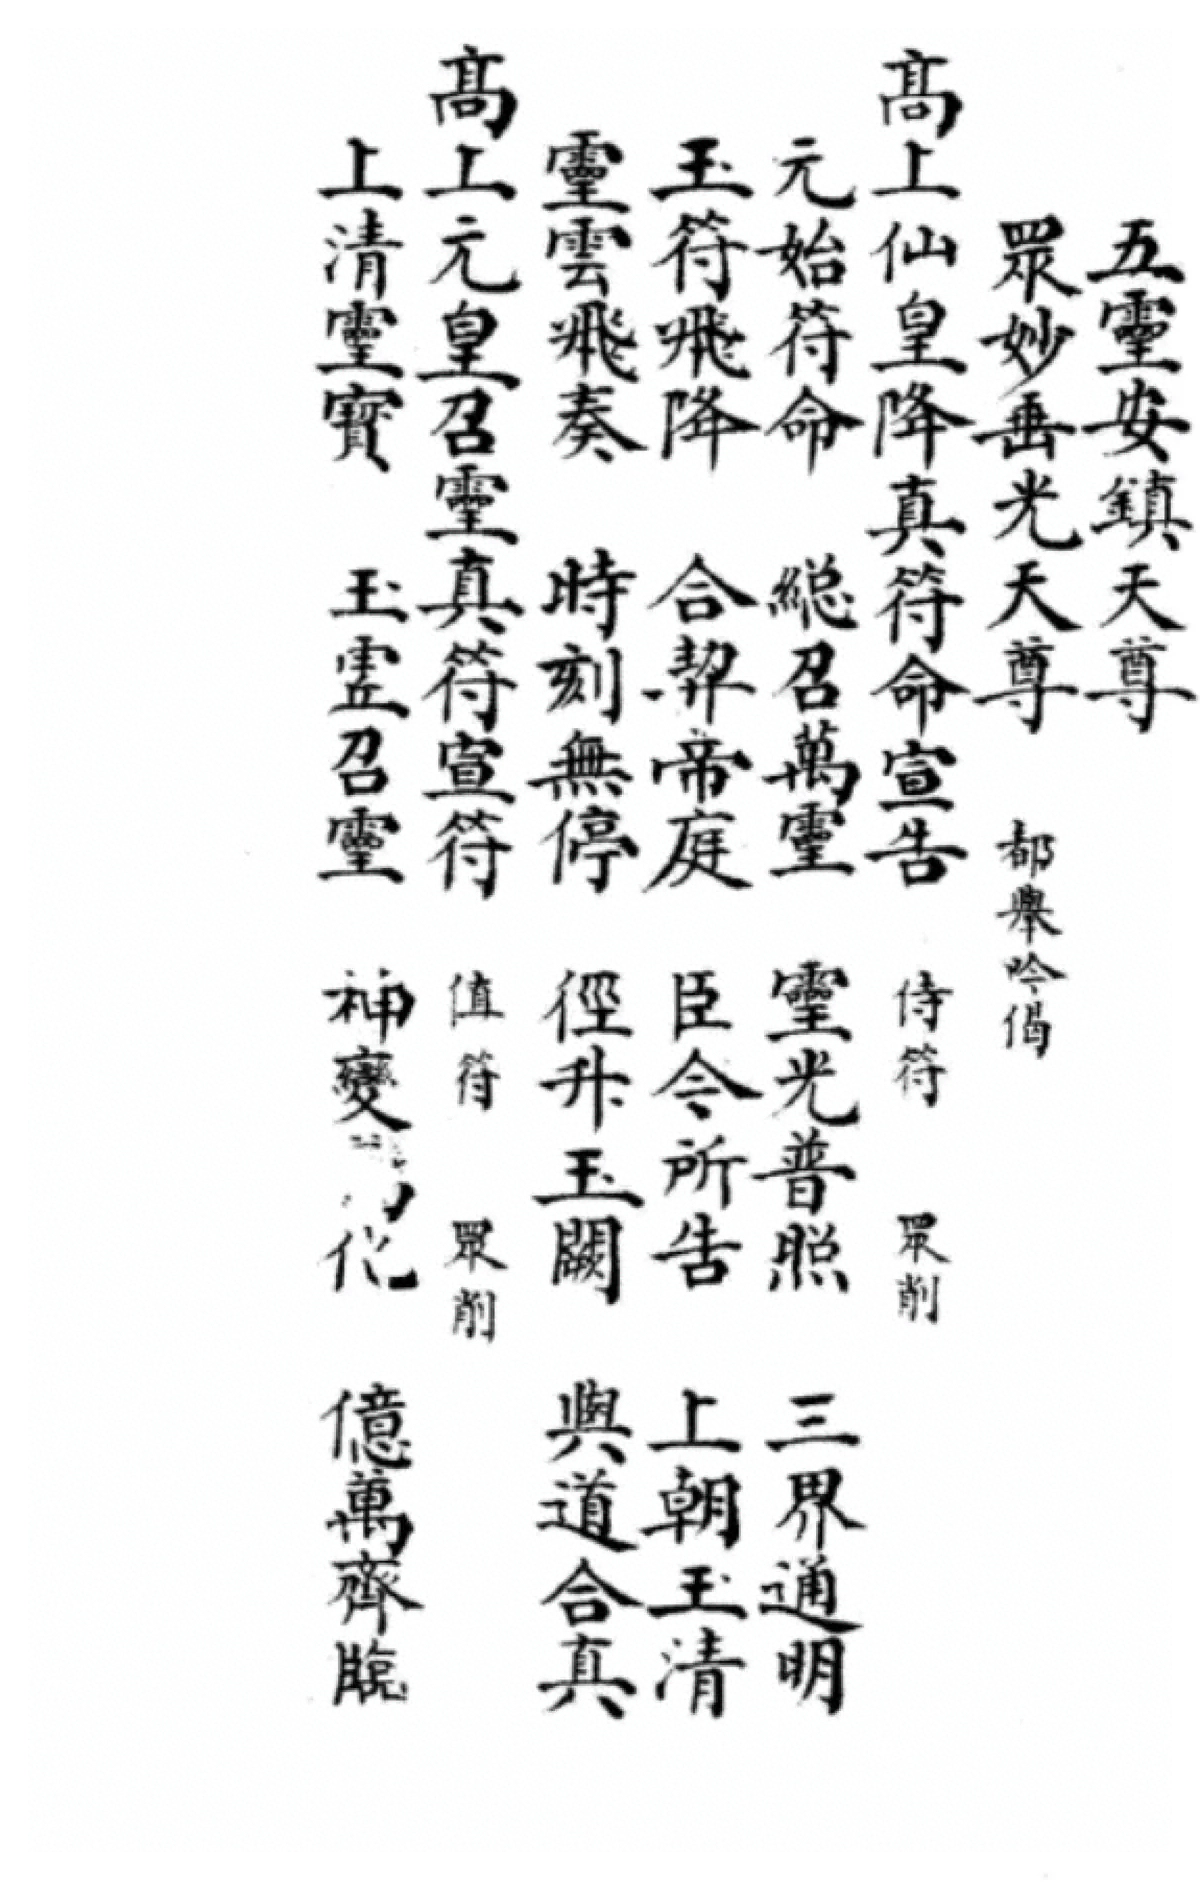 五靈安鎮天尊
眾妙垂光天尊 都舉吟偈
高上仙皇降真符命宣告 侍符 眾削
元始符命 総召萬靈 靈光普照 三界通明
玉符飛降 合契帝庭 臣今所告 上朝玉清
靈雲飛奏 時刻無停 徑升玉闕 與道合真
高上元皇召靈真符宣符 值符 眾削
上清靈寶 玉虛召靈 神變 化 億萬齊臨